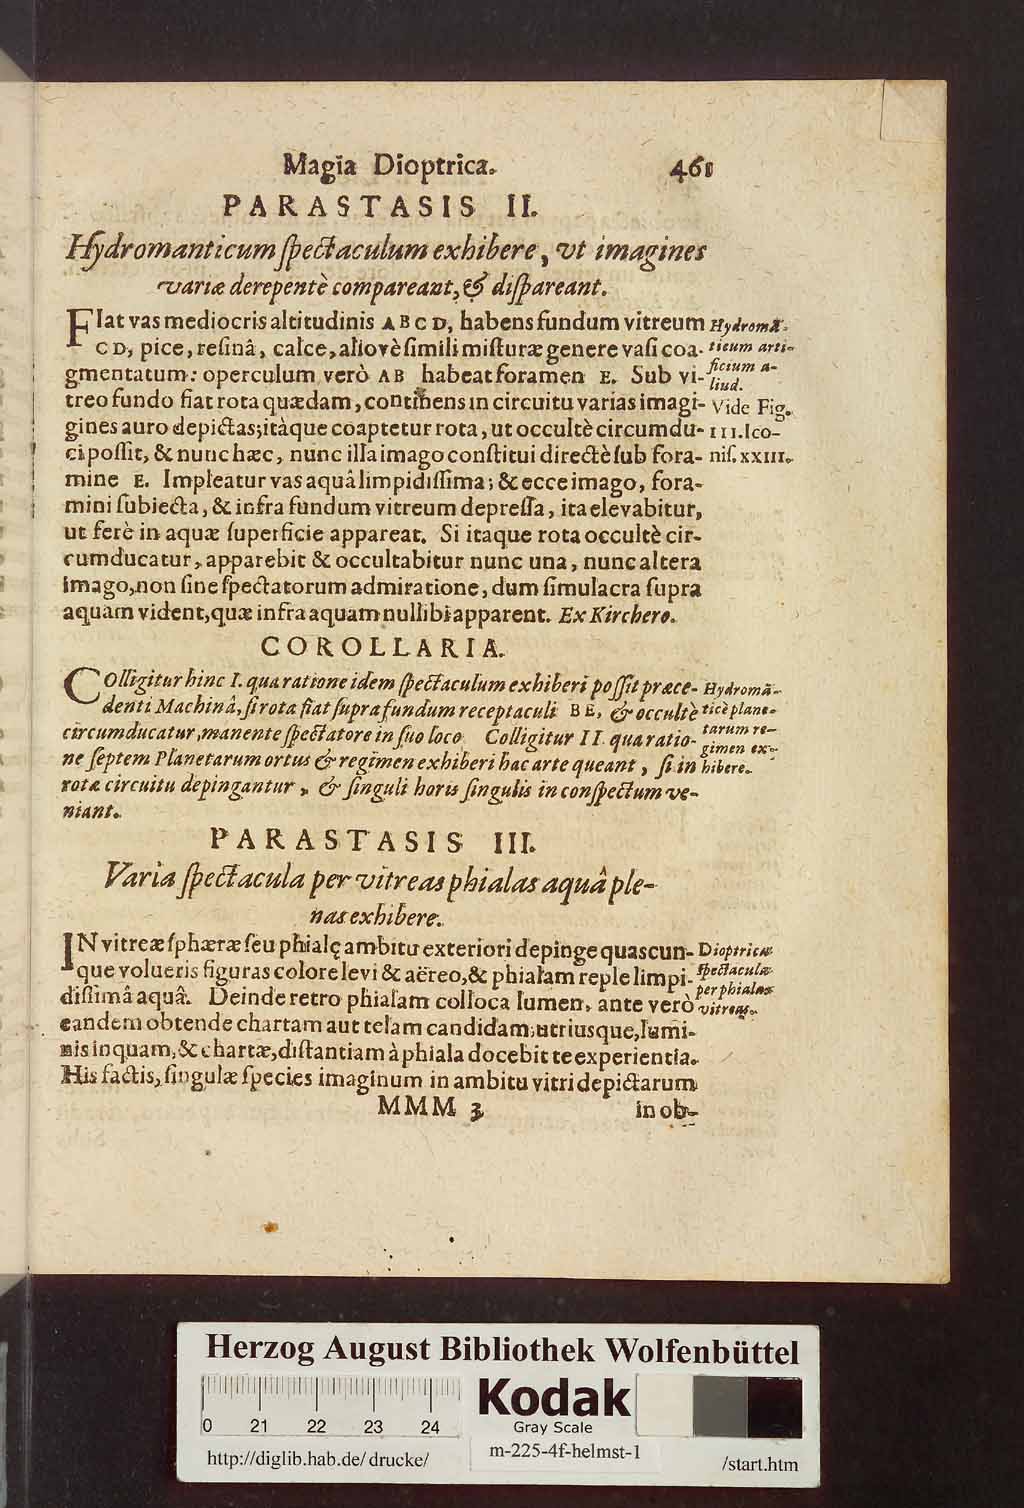 Magia Dioptrica. 461
PARASTASIS II.
Hydromanticum ſpectaculum exhibere, vt imagines
variæ derepentè compareant, & diſpareant.
FIat vas mediocris altitudinis ABCD, habens fundum vitreum
CD, pice, reſinâ, calce, aliovè ſimili miſturæ genere vaſi coa-
gmentatum: operculum verò AB habeat foramen E. Sub vi-
treo fundo fiat rota quædam, continens in circuitu varias imagi-
gines auro depictas; itàque coaptetur rota, ut occultè circumdu-
ci poſſit, & nunc hæc, nunc illa imago conſtitui directè ſub fora-
mine E. Impleatur vas aquâ limpidiſſima; & ecce imago, fora-
mini ſubiecta, & infra fundum vitreum depreſſa, ita elevabitur,
ut ferè in aquæ ſuperficie appareat. Si itaque rota occultè cir-
cumducatur, apparebit & occultabitur nunc una, nunc altera
imago, non ſine ſpectatorum admiratione, dum ſimulacra ſupra
aquam vident, quæ infra aquam nullibi apparent. Ex Kirchero.
Hydromā-
ticum arti-
ficium a-
liud.
Vide Fig.
III. Ico-
niſ. XXIII.
COROLLARIA.
COlligitur hinc I. qua ratione idem ſpectaculum exhiberi poſſit præce-
denti Machinâ, ſi rota fiat ſupra fundum receptaculi BE, & occultè
circumducatur, manente ſpectatore in ſuo loco. Colligitur II. qua ratio-
ne ſeptem Planetarum ortus & regimen exhiberi hac arte queant, ſi in
rotæ circuitu depingantur, & ſinguli horis ſingulis in conſpectum ve-
niant.
Hydromā-
ticè plane-
tarum re-
gimen ex-
hibere.
PARASTASIS III.
Varia ſpectacula per vitreas phialas aquâ ple-
nas exhibere.
IN vitreæ ſphæræ ſeu phialę ambitu exteriori depinge quascun-
que volueris figuras colore levi & aëreo, & phialam reple limpi-
diſſimâ aquâ. Deinde retro phialam colloca lumen, ante verò
eandem obtende chartam aut telam candidam; utriusque, lumi-
nis inquam, & chartæ, diſtantiam à phiala docebit te experientia.
His factis, ſingulæ ſpecies imaginum in ambitu vitri depictarum
Dioptrica
ſpectacula
per phialas
vitreas.
MMM 3 in ob-
Herzog August Bibliothek Wolfenbüttel
0 21 22 23 24
Kodak
Gray Scale
m-225-4f-helmst-1
http://diglib.hab.de/drucke/
/start.htm